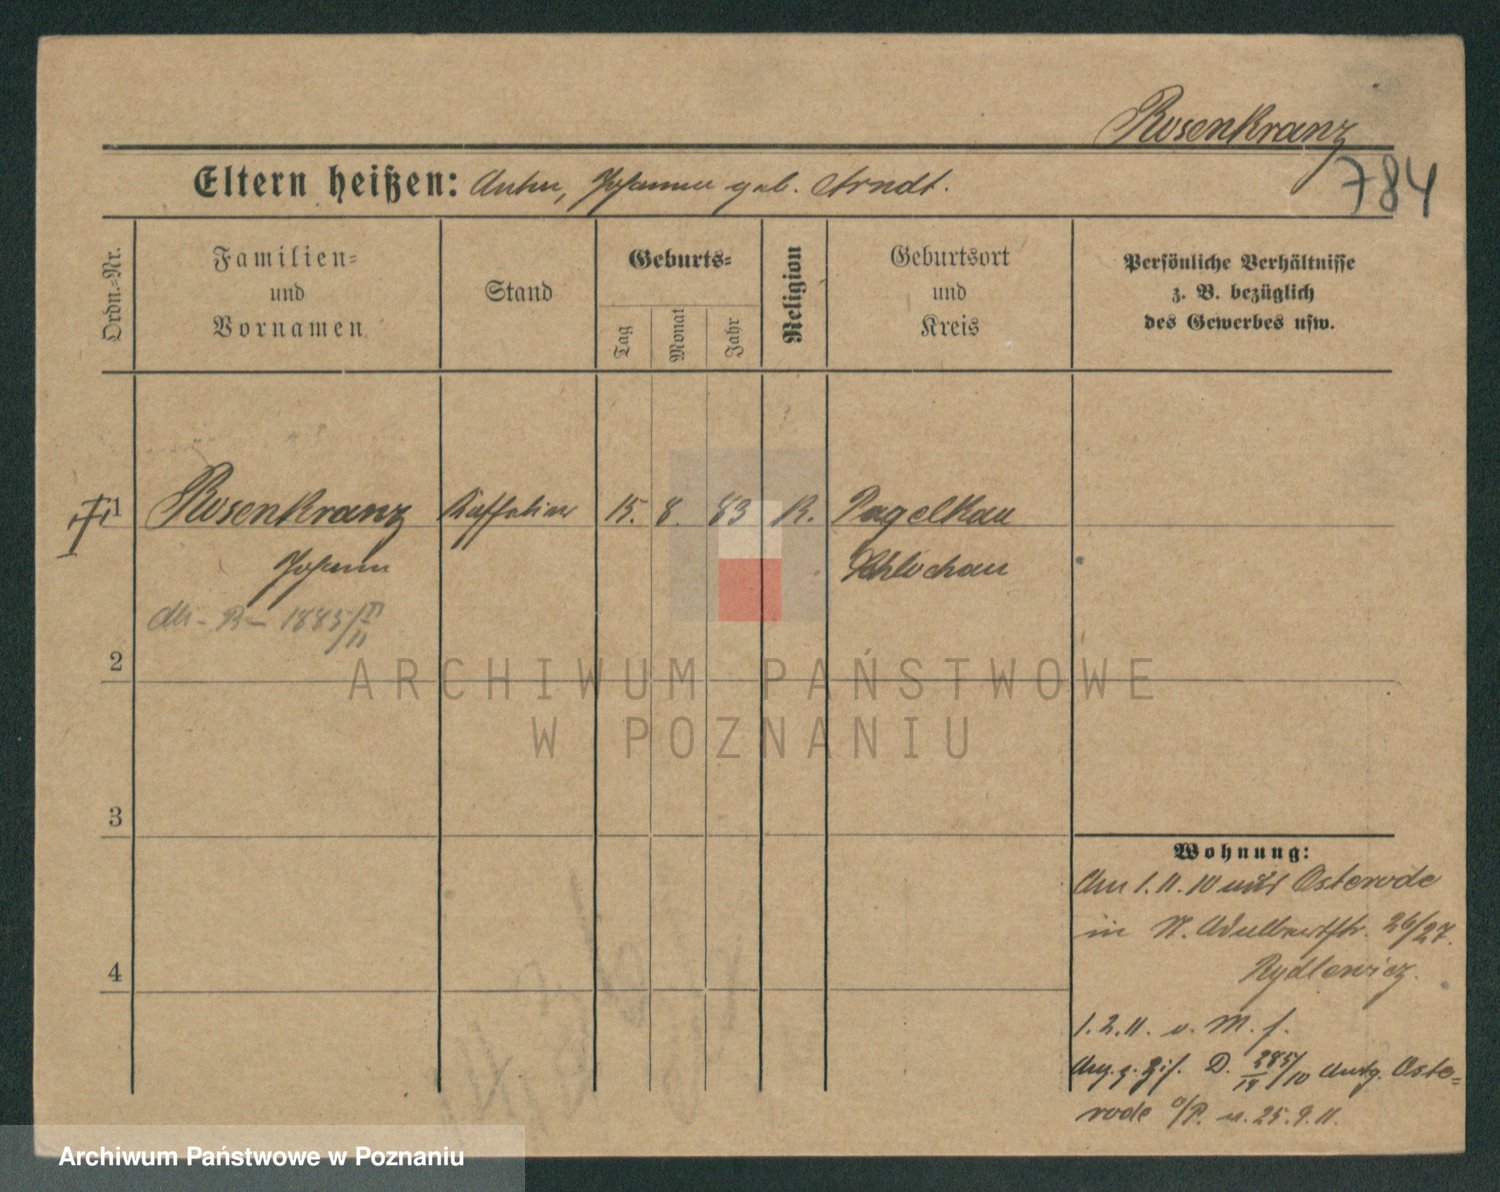 Rosenkranz
784
Eltern heißen: Anton, Johanna geb. Arndt.
Ordn.-Nr.
Familien-
und
Vornamen
Stand
Geburts-
Tag
Monat
Jahr
Religion
Geburtsort
und
Kreis
Persönliche Verhältnisse
z. B. bezüglich
des Gewerbes usw.
1 Rosenkranz 15. 8. 83 K. Pagelkau
Johann Schlochau
R 1885/
2
ARCHIWUM PAŃSTWOWE
W POZNANIU
3
Wohnung:
Am 1. 11. 10 aus Osterode
in St. Adalbertstr. 26/27.
Rydlewicz.
4
1. 2. 11. v. M. f.
D. /10 Osterode
v. 25. 9. 11.
Archiwum Państwowe w Poznaniu